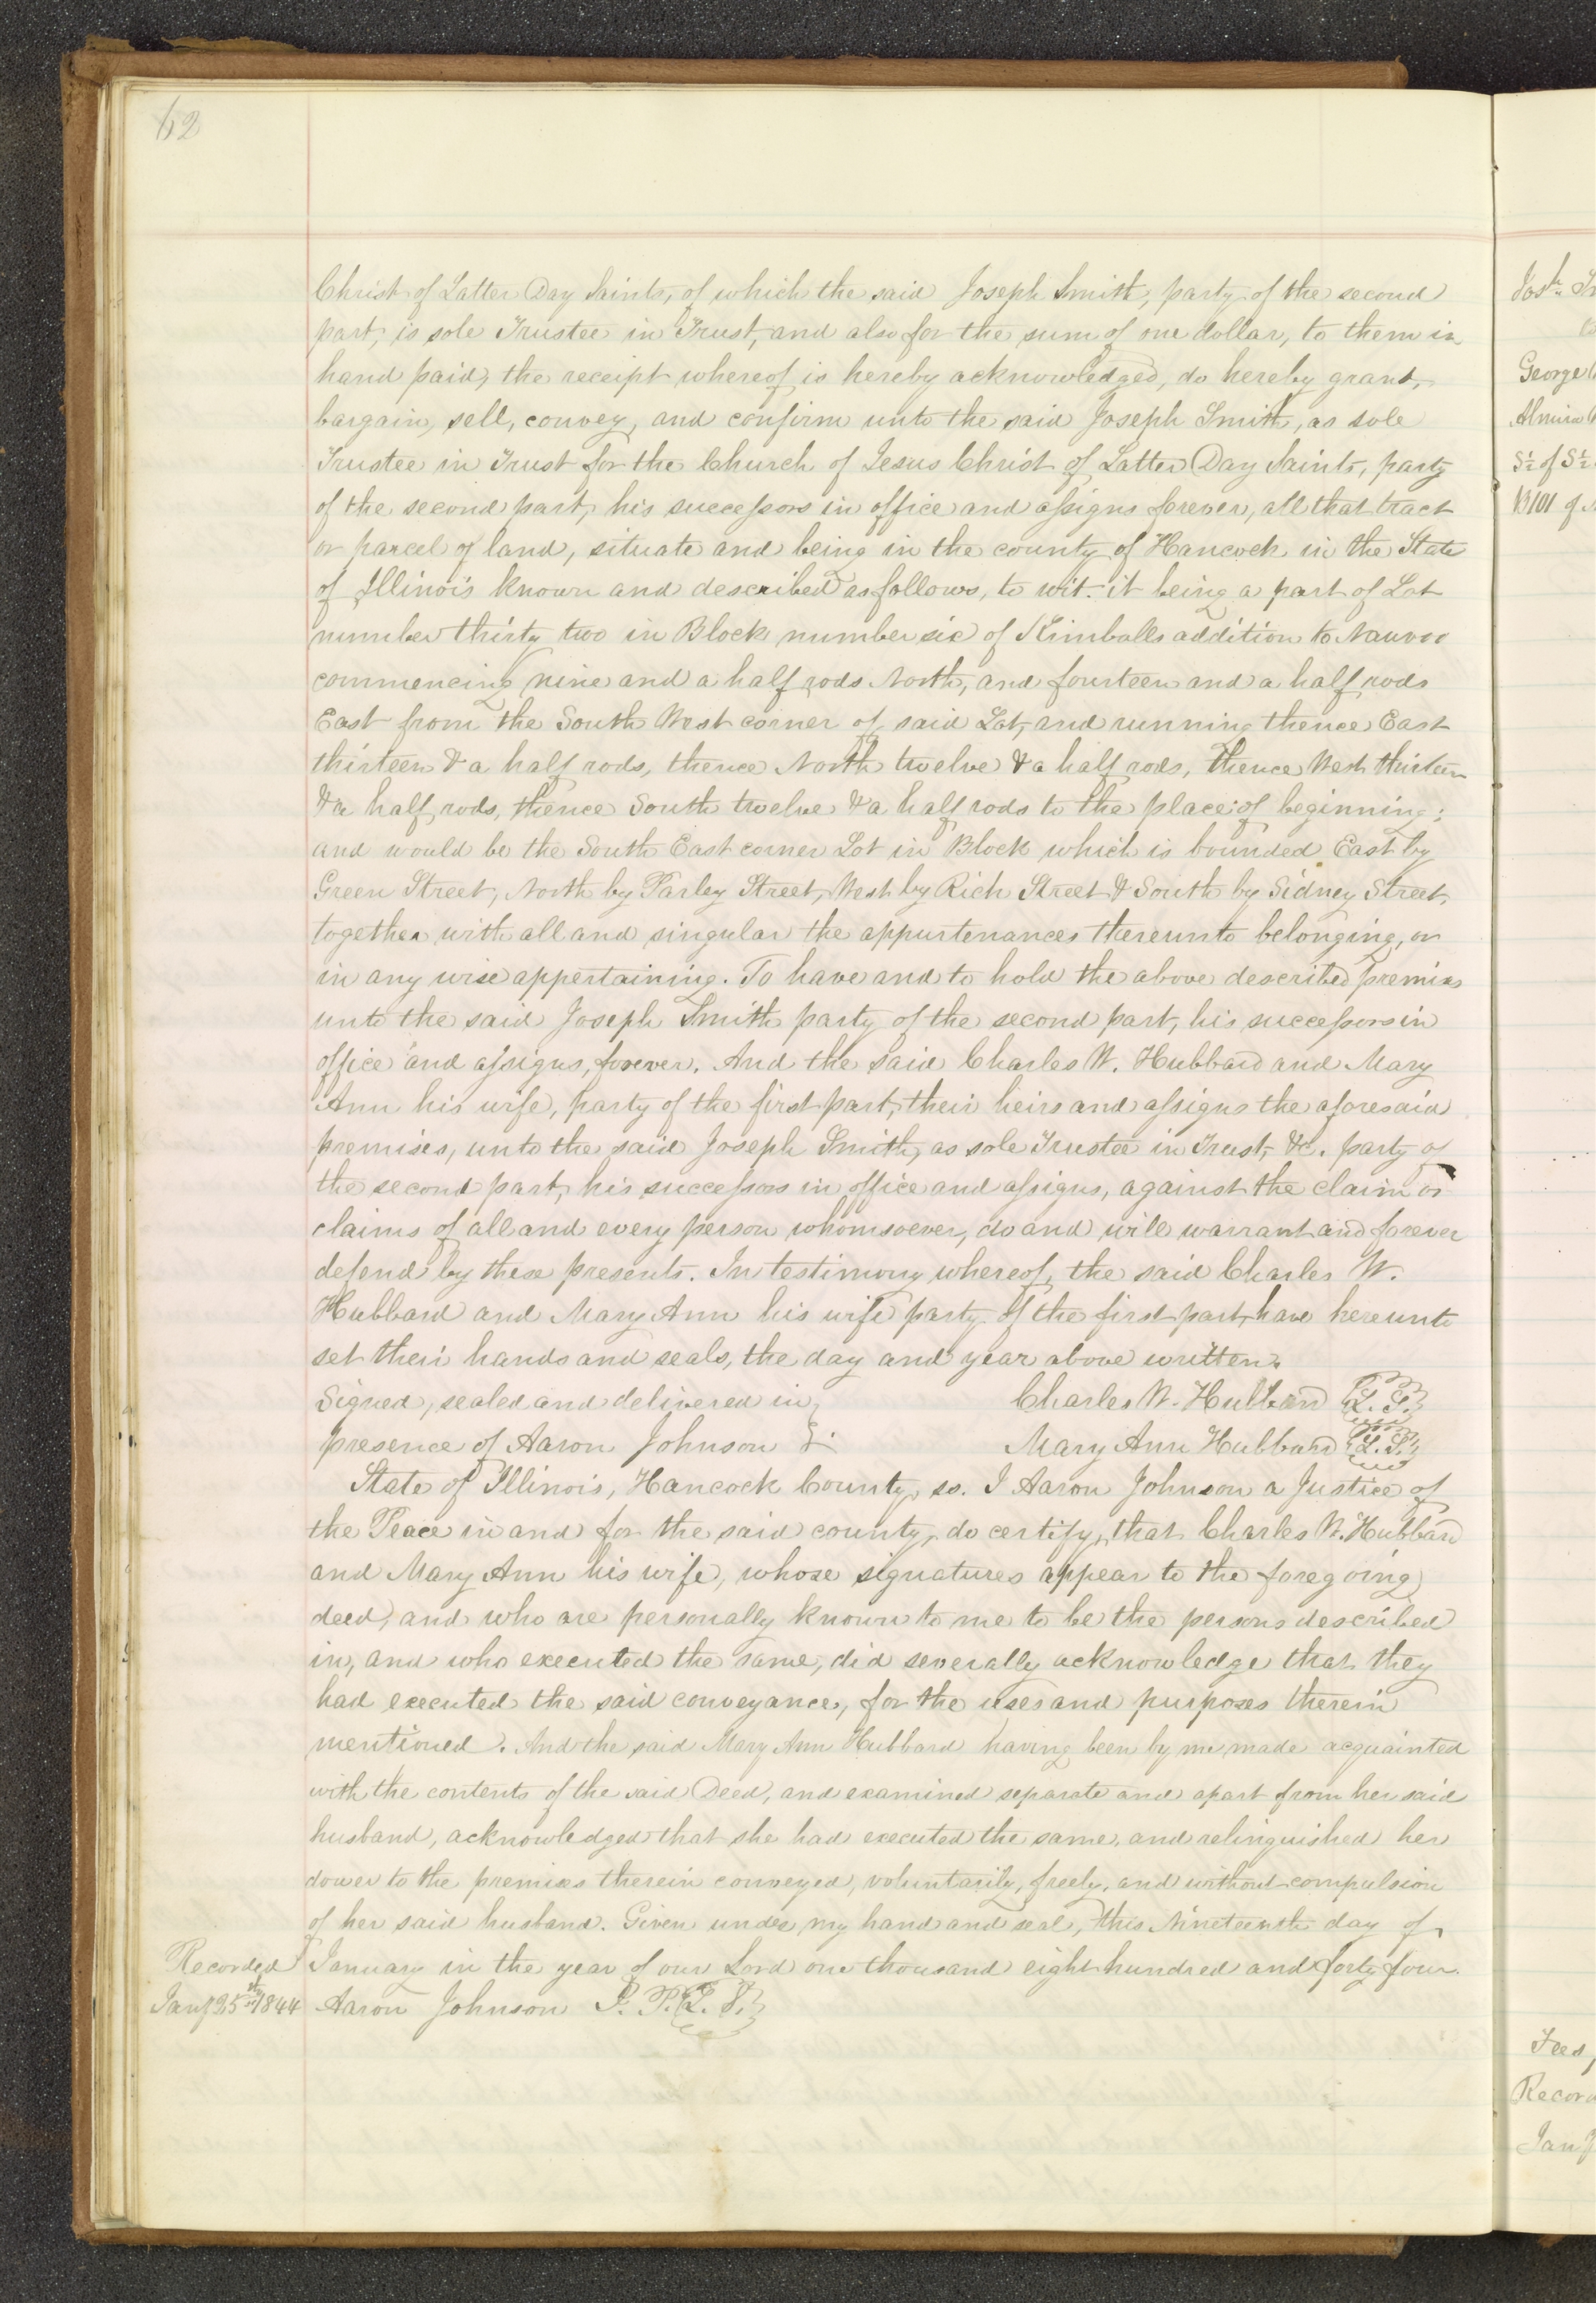 62
Christ of Latter Day Saints, of which the said Joseph Smith, party of the second
part, is sole Trustee in Trust, and also for the sum of one dollar, to them in
hand paid, the receipt whereof is hereby acknowledged, do hereby grant,
bargain, sell, convey, and confirm unto the said Joseph Smith, as sole
Trustee in Trust for the Church of Jesus Christ of Latter Day Saints, party
of the second part, his successors in office and assigns forever, all that tract
or parcel of land, situate and being in the county of Hancock in the State
of Illinois known and described as follows, to wit: it being a part of Lot
number thirty two in Block number six of Kimballs addition to Nauvoo
commencing nine and a half rods North, and fourteen and a half rods
East from the South West corner of said Lot, and running thence East
thirteen & a half rods, thence North twelve & a half rods, thence West thirteen
& a half rods, thence South twelve & a half rods to the place of beginning;
and would be the South East corner Lot in Block which is bounded East by
Green Street, North by Parley Street, West by Rich Street & South by Sidney Street,
together with all and singular the appurtenances thereunto belonging, or
in any wise appertaining. To have and to hold the above described premises
unto the said Joseph Smith party of the second part, his successors in
office and assigns, forever. And the said Charles W. Hubbard and Mary
Ann his wife, party of the first part, their heirs and assigns the aforesaid
premises, unto the said Joseph Smith, as sole Trustee in Trust, &c. party of
the second part, his successors in office and assigns, against the claim or
claims of all and every person whomsoever, do and will warrant and forever
defend by these presents. In testimony whereof, the said Charles W.
Hubbard and Mary Ann his wife party of the first part, have hereunto
set their hands and seals, the day and year above written.
Signed, sealed and delivered in } Charles W. Hubbard {L.S.}
presence of Aaron Johnson } Mary Ann Hubbard {L.S.}
State of Illinois, Hancock County, ss. I Aaron Johnson a Justice of
the Peace in and for the said county, do certify, that Charles W. Hubbard
and Mary Ann his wife, whose signatures appear to the foregoing
deed, and who are personally known to me to be the persons described
in, and who executed the same, did severally acknowledge that they
had executed the said conveyance, for the uses and purposes therein
mentioned. And the said Mary Ann Hubbard having been by me made acquainted
with the contents of the said Deed, and examined separate and apart from her said
husband, acknowledged that she had executed the same, and relinquished her
dower to the premises therein conveyed, voluntarily, freely, and without compulsion
of her said husband. Given under my hand and seal, this Nineteenth day of
Recorded January in the year of our Lord one thousand eight hundred and forty four.
Jany 25th 1844 Aaron Johnson J. P. {L. S.}
Josh
George
Almira
S½ of S½
B101 of
Fees,
Record
Jany